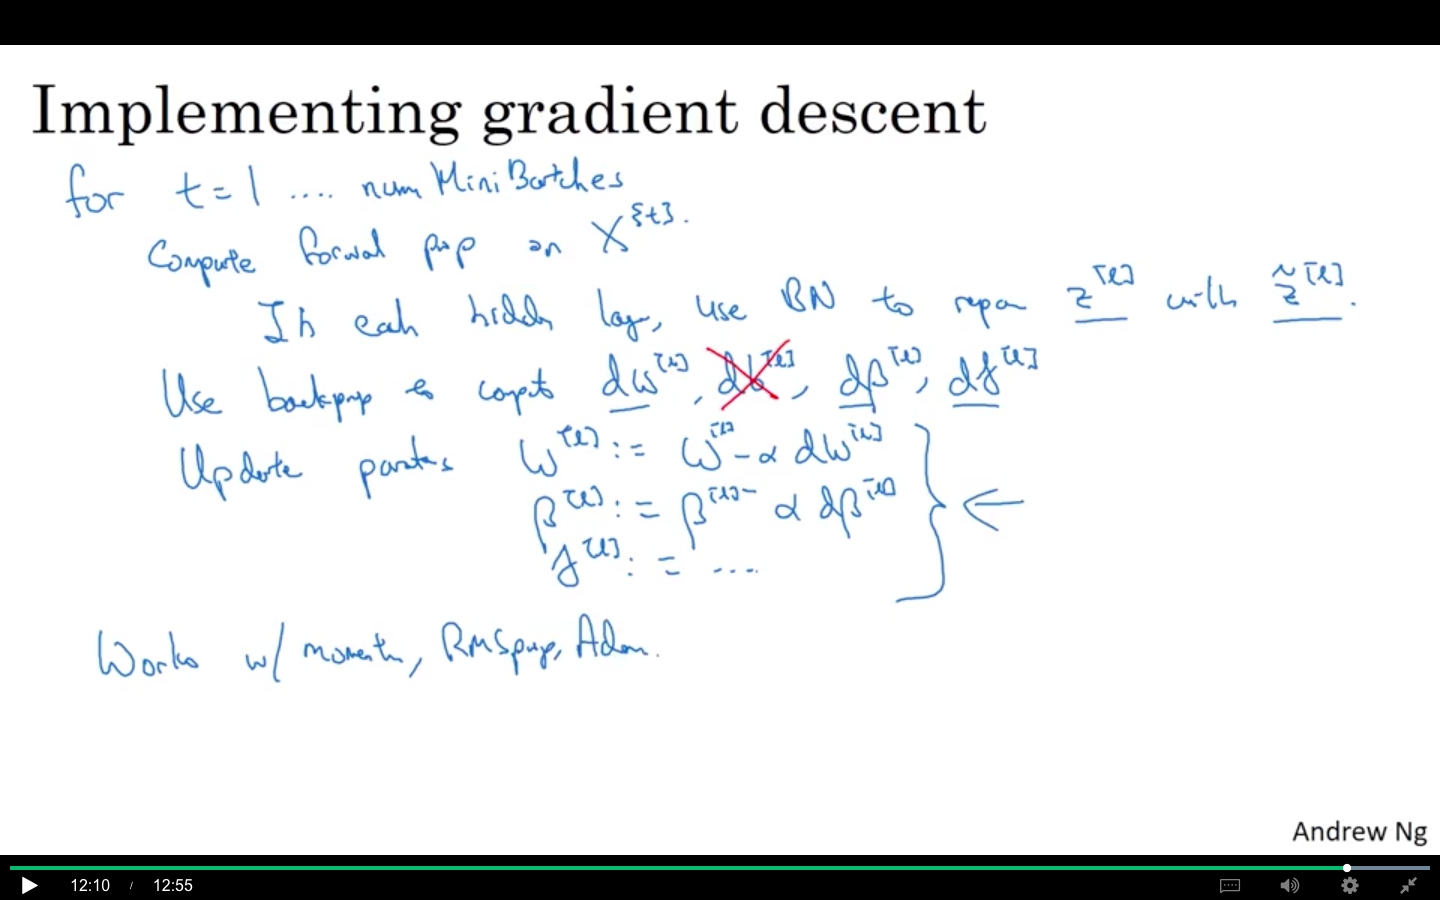 Implementing gradient descent
for t = 1 .... num MiniBatches
Compute forward prop on X^{t}.
In each hidden layer, use BN to repan z^[l] with z̃^[l].
Use backprop to compute dw^[l], db^[l], dβ^[l], dγ^[l]
Update parameters w^[l] := w^[l] - α dw^[l]
β^[l] := β^[l] - α dβ^[l]
γ^[l] := ....
Works w/ momentum, RMSprop, Adam.
Andrew Ng
12:10 / 12:55